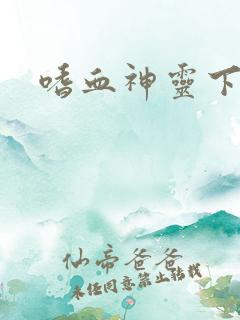 嗜血神靈下
仙帝爸爸
未经同意禁止转载